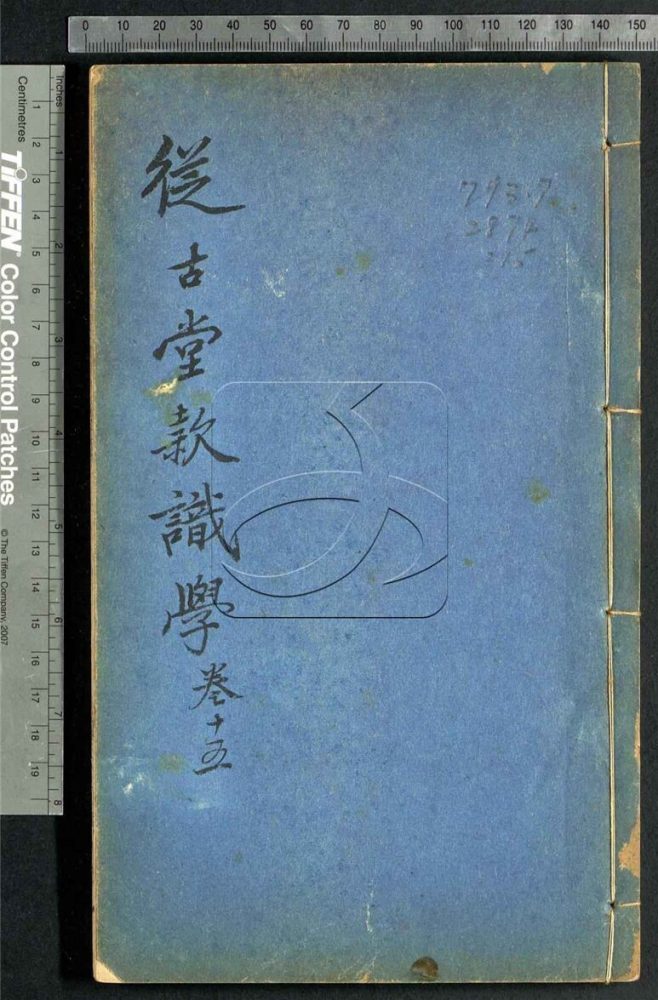 0 10 20 30 40 50 60 70 80 90 100 110 120 130 140 150
inches 1 2 3 4 5 6 7 8
Centimetres 1 2 3 4 5 6 7 8 9 10 11 12 13 14 15 16 17 18 19
TIFFEN® Color Control Patches
© The Tiffen Company, 2007
從古堂款識學卷十五
793.7